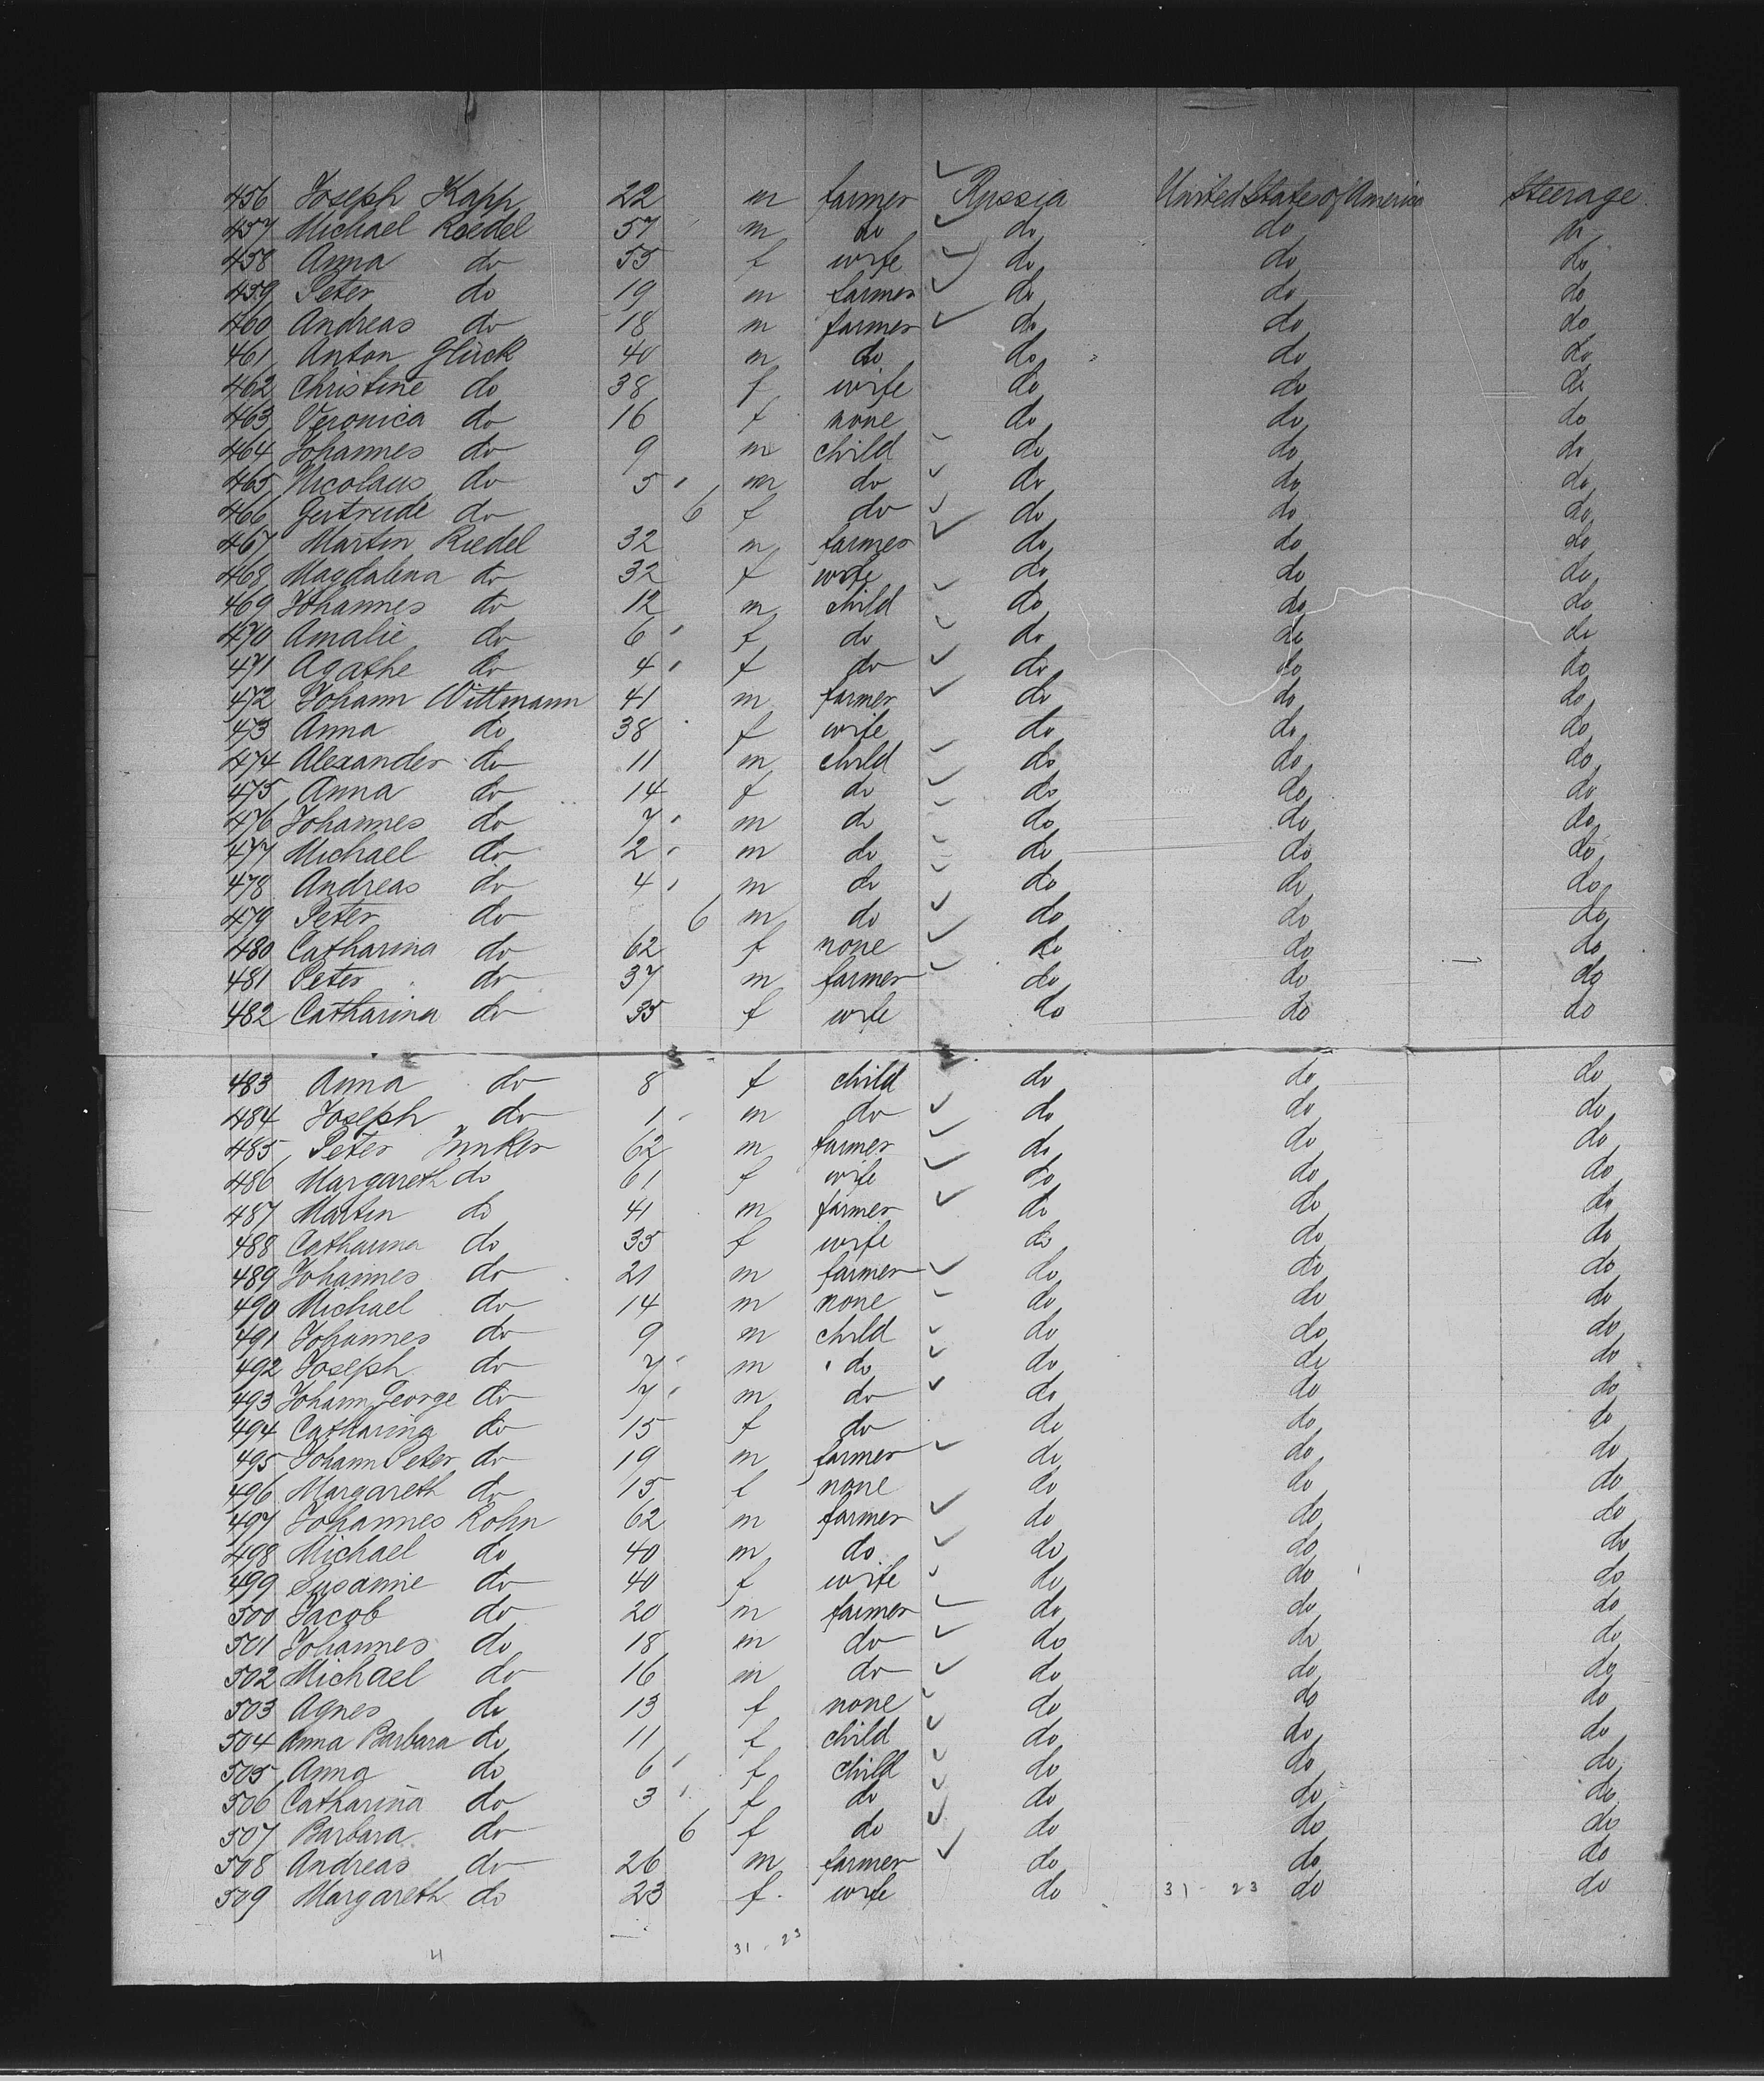 456 Joseph Kapp 22 m farmer Russia United States of America Steerage.
457 Michael Roedel 57 m do do do do
458 Anna do 55 f wife do do do
459 Peter do 19 m farmer do do do
460 Andreas do 18 m farmer do do do
461 Anton Glück 40 m do do do do
462 Christine do 38 f wife do do do
463 Veronica do 16 f none do do do
464 Johannes do 9 m child do do do
465 Nicolaus do 5 m do do do do
466 Gertrude do 6 f do do do do
467 Martin Riedel 32 m farmer do do do
468 Magdalena do 32 f wife do do do
469 Johannes do 12 m child do do do
470 Amalie do 6 f do do do do
471 Agathe do 4 f do do do do
472 Johann Wittmann 41 m farmer do do do
473 Anna do 38 f wife do do do
474 Alexander do 11 m child do do do
475 Anna do 14 f do do do do
476 Johannes do 7 m do do do do
477 Michael do 2 m do do do do
478 Andreas do 4 m do do do do
479 Peter do 6 m do do do do
480 Catharina do 62 f none do do do
481 Peter do 37 m farmer do do do
482 Catharina do 35 f wife do do do
483 Anna do 8 f child do do do
484 Joseph do 1 m do do do do
485 Peter Junker 62 m farmer do do do
486 Margareth do 61 f wife do do do
487 Martin do 41 m farmer do do do
488 Catharina do 35 f wife do do do
489 Johannes do 21 m farmer do do do
490 Michael do 14 m none do do do
491 Johannes do 9 m child do do do
492 Joseph do 7 m do do do do
493 Johann George do 7 m do do do do
494 Catharina do 15 f do do do do
495 Johann Peter do 19 m farmer do do do
496 Margareth do 15 f none do do do
497 Johannes Rohn 62 m farmer do do do
498 Michael do 40 m do do do do
499 Susanne do 40 f wife do do do
500 Jacob do 20 m farmer do do do
501 Johannes do 18 m do do do do
502 Michael do 16 m do do do do
503 Agnes do 13 f none do do do
504 Anna Barbara do 11 f child do do do
505 Anna do 6 f child do do do
506 Catharina do 3 f do do do do
507 Barbara do 6 f do do do do
508 Andreas do 26 m farmer do do do
509 Margareth do 23 f. wife do 31 - 23 do do
31 - 23